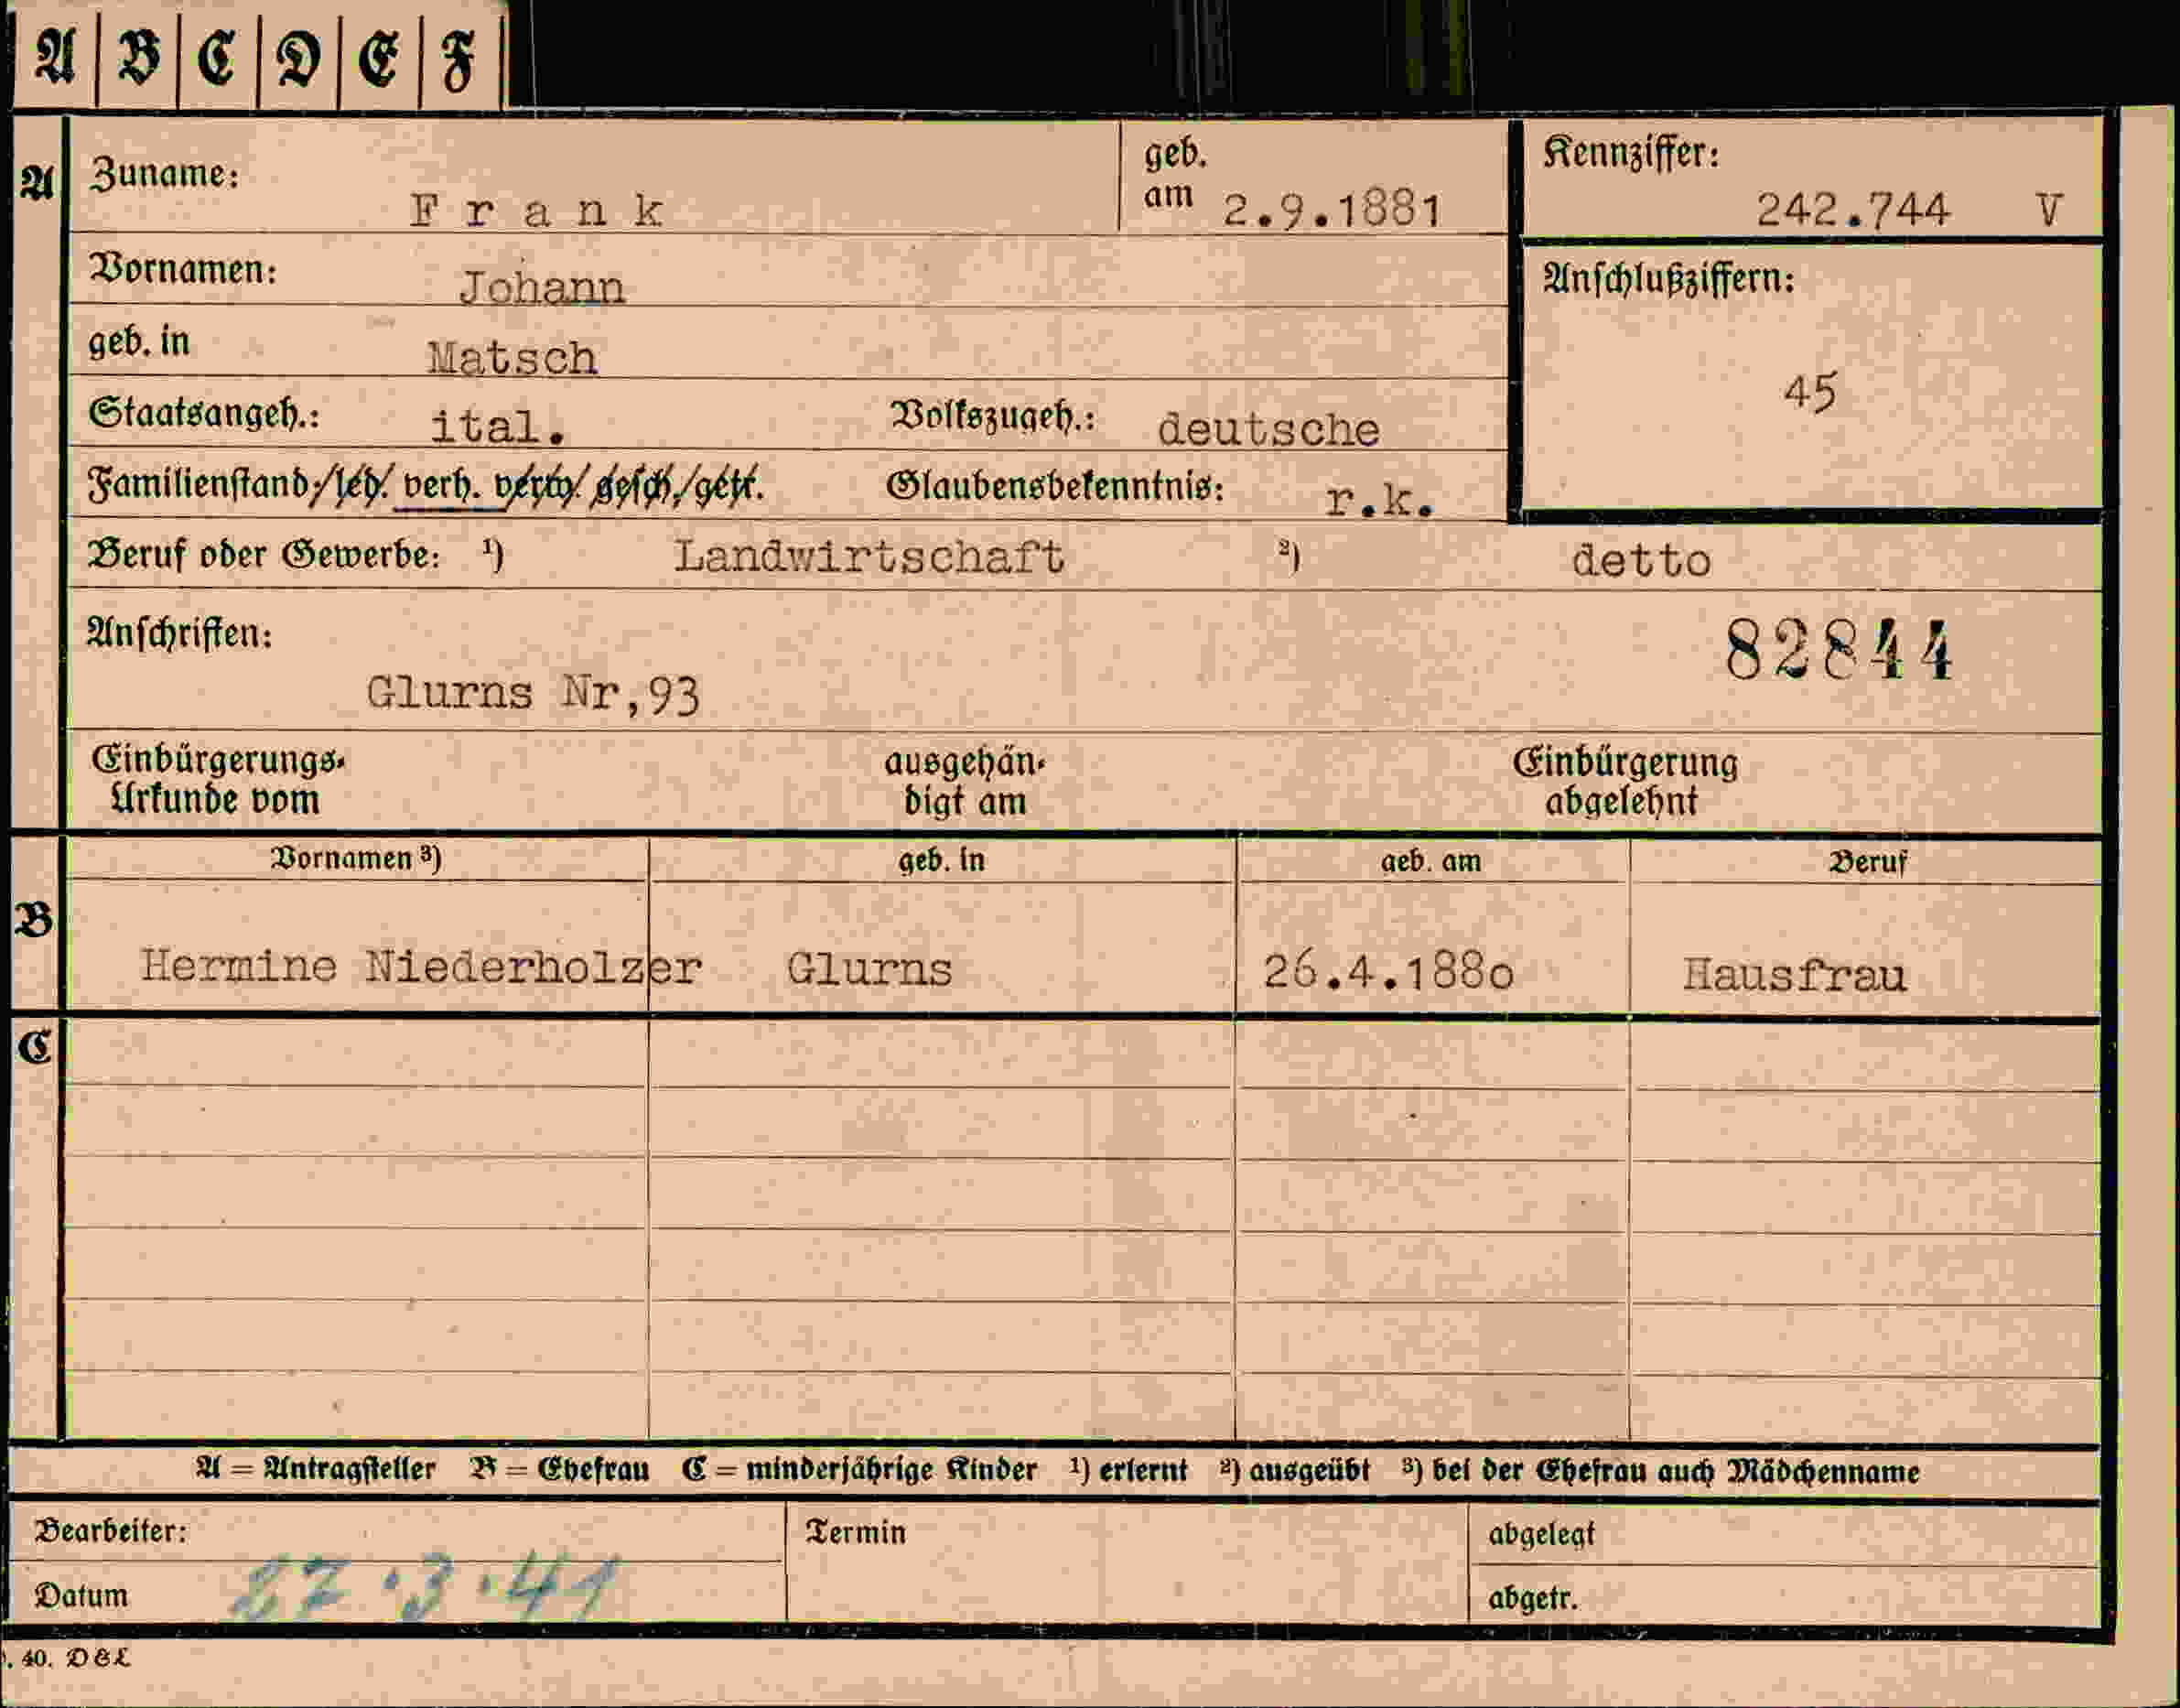 A B C D E F
A Zuname: Frank geb. am 2.9.1881 Kennziffer: 242.744 V
Vornamen: Johann Anschlußziffern:
geb. in Matsch 45
Staatsangeh.: ital. Volkszugeh.: deutsche
Familienstand: led. verh. verw. gesch. getr. Glaubensbekenntnis: r.k.
Beruf oder Gewerbe: ¹) Landwirtschaft ²) detto
Anschriften: 82844
Glurns Nr,93
Einbürgerungs- ausgehän- Einbürgerung
Urkunde vom digt am abgelehnt
Vornamen ³) geb. in geb. am Beruf
B Hermine Niederholzer Glurns 26.4.188o Hausfrau
C
A = Antragsteller B = Ehefrau C = minderjährige Kinder ¹) erlernt ²) ausgeübt ³) bei der Ehefrau auch Mädchenname
Bearbeiter: Termin abgelegt
Datum 27.3.41 abgetr.
. 40. D&L